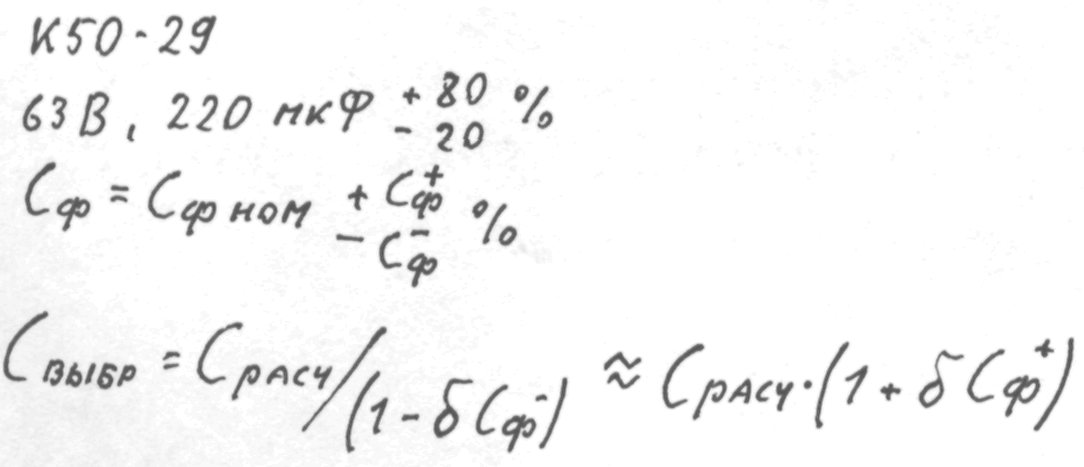 К50-29
63В, 220 мкФ +80 -20 %
Cф = Cф ном + Cф⁺ - Cф⁻ %
Cвыбр = Cрасч/(1 - δCф⁻) ≈ Cрасч·(1 + δCф⁺)